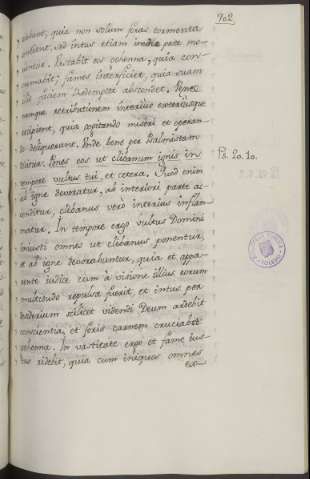 702
riebant, quia non solum foras tormenta
sentient, sed intus etiam
mentis. Restabit eos gehenna, quia con-
cremabit; fames interficiet, quia suam
illis faciem Redemptor abscondet. Bene
namque retributionem interius exteriusque
recipient, quia cogitando miseri et operan-
do delinquerant. Unde bene per Psalmistam
dicitur. Pones eos ut clibanum ignis in Ps. 20. 10.
tempore vultus tui, et cetera. Quod enim
ab igne devoratur, ab inferiori parte ac-
cenditur, clibanus vero interius inflam-
matur. In tempore ergo vultus Domini
iniusti omnes ut clibanus ponentur,
et ab igne devorabuntur, quia et appa-
rente iudice cum a visione illius eorum
multitudo repulsa fuerit, et intus per
desiderium scilicet videndi Deum ardebit
conscientia, et foris carnem cruciabit
gehenna. In vastitate ergo et fame ius-
tus ridebit, quia cum iniquos omnes